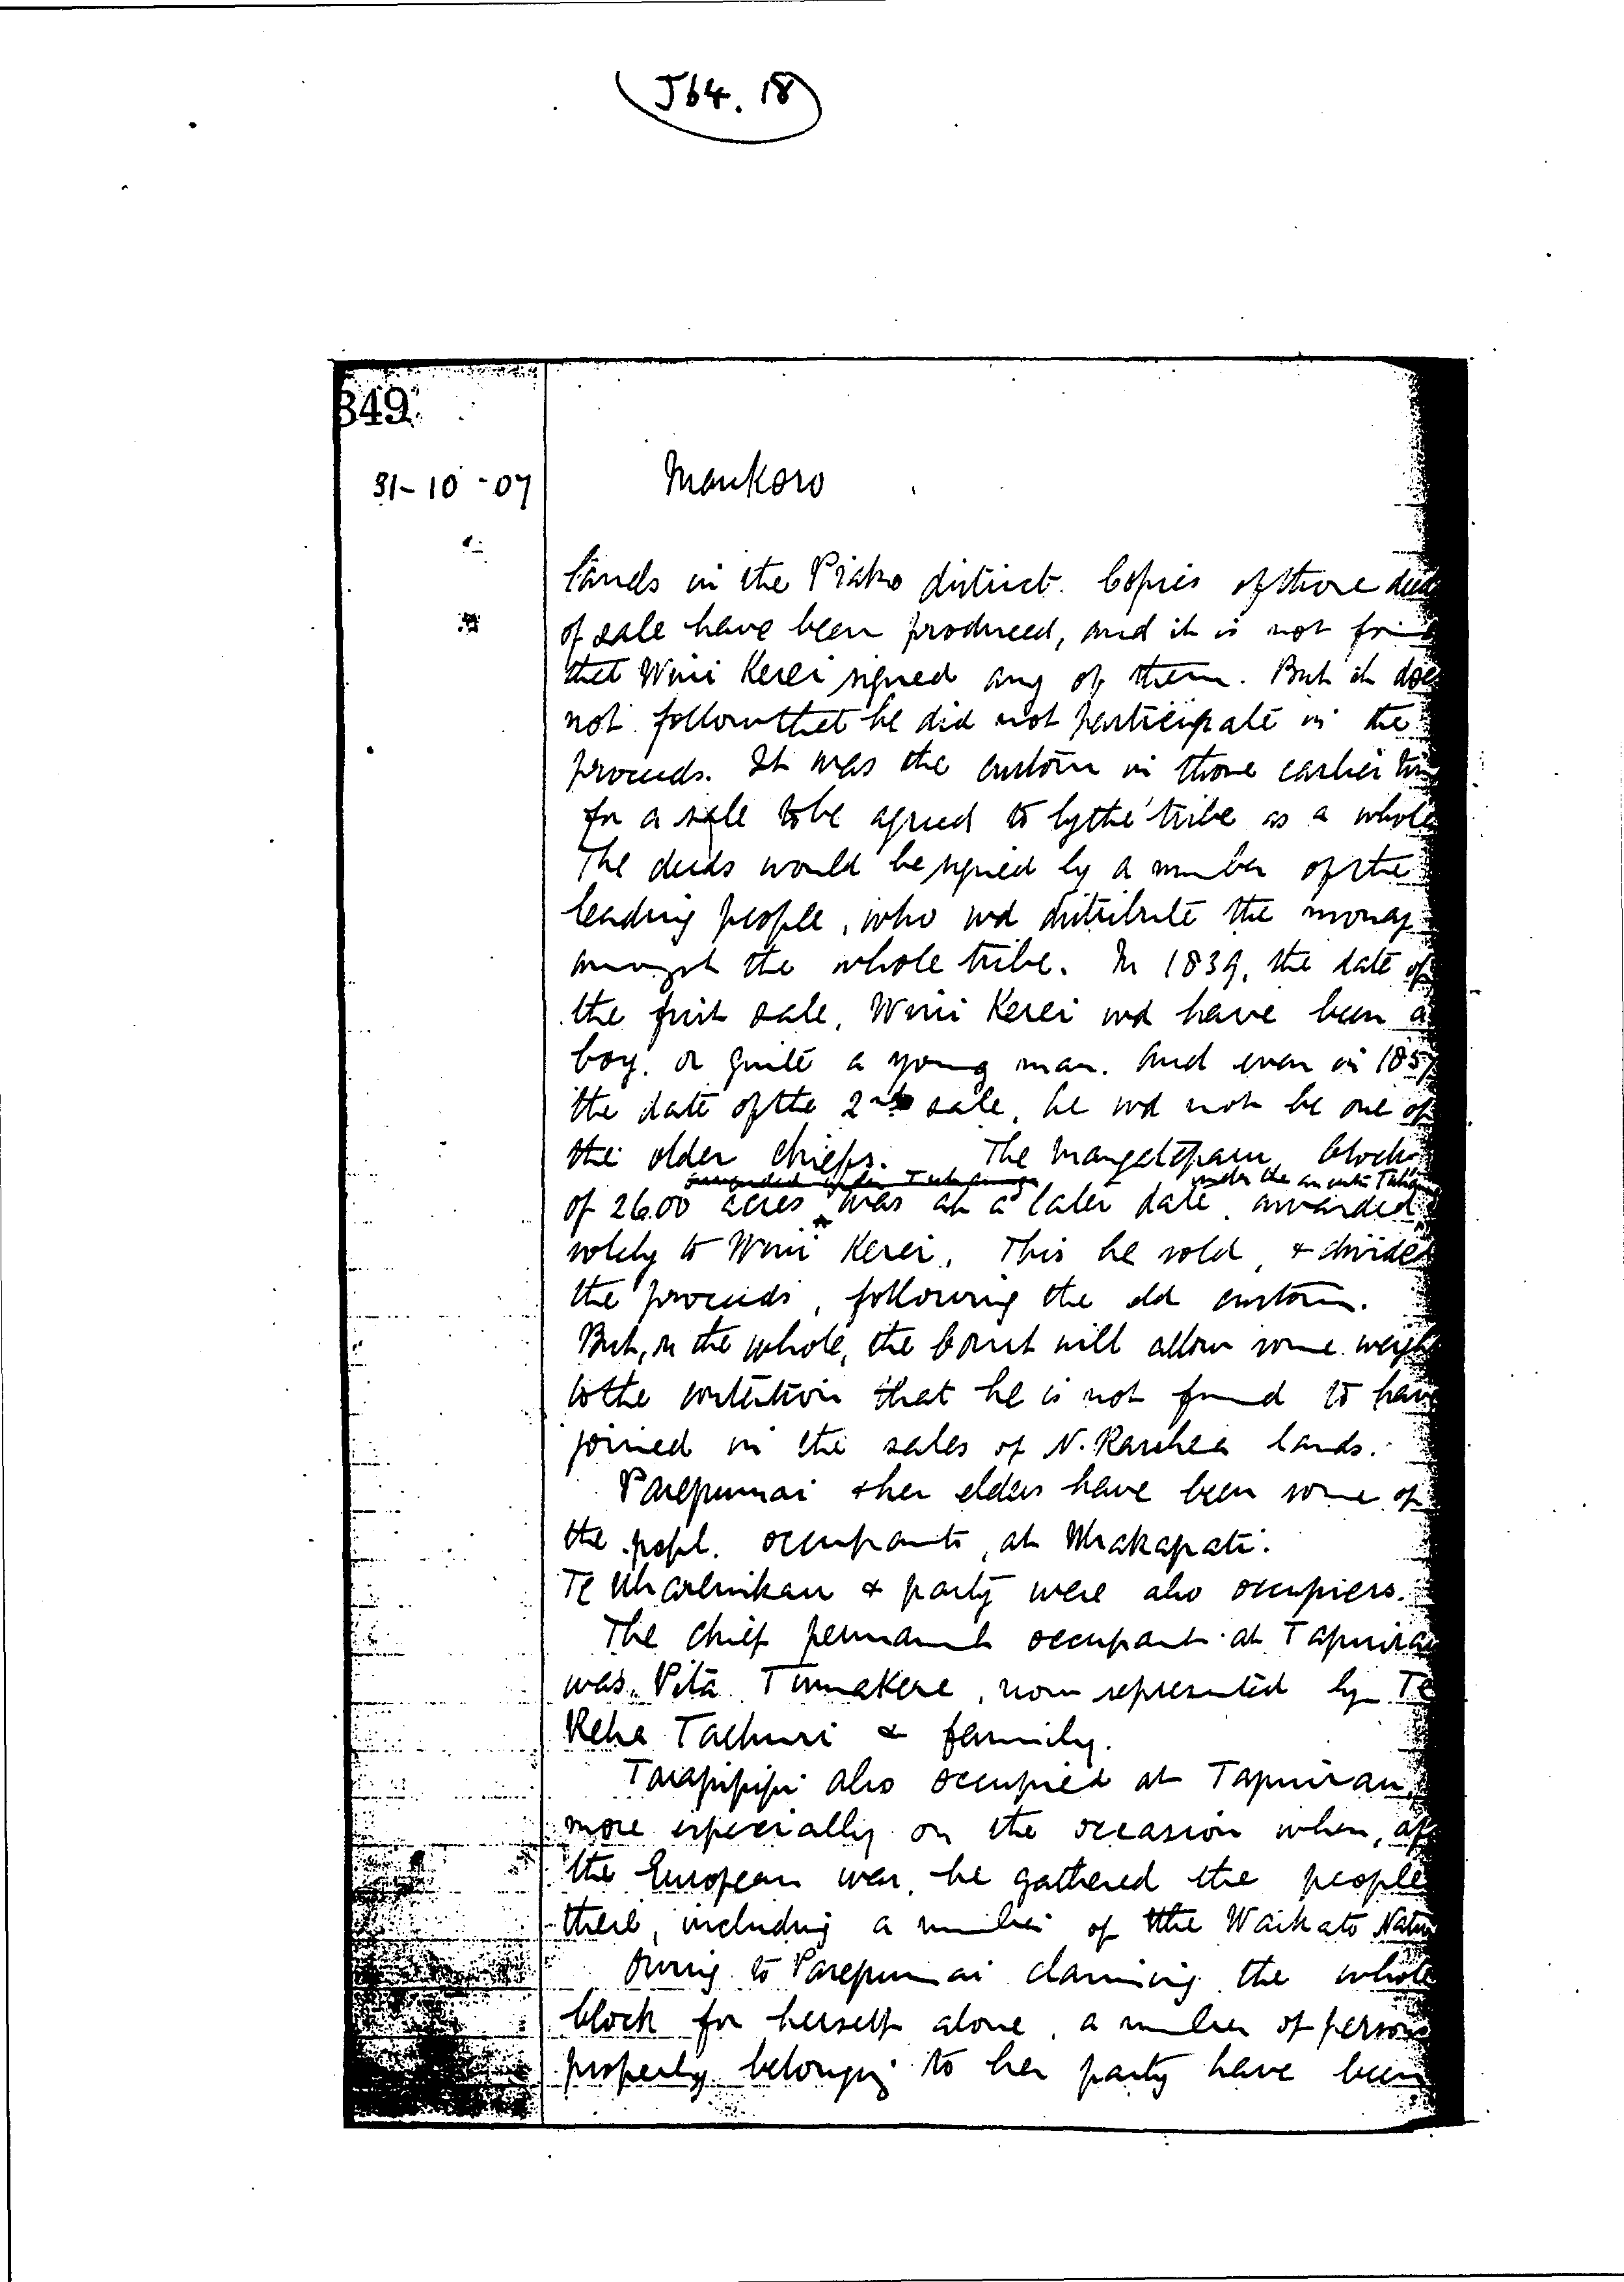 J64.18
349.
31-10-07
Maukoro
lands in the Piako district. Copies of those deed
of sale have been produced, and it is not
that Wini Kerei signed any of them. But it does
not follow that he did not participate in the
proceeds. It was the custom in those earlier
for a sale to be agreed to by the tribe as a whole
The deeds would be signed by a number of the
leading people, who wd distribute the money
amongst the whole tribe. In 1839, the date of
the first sale, Wini Kerei wd have been a
boy, or quite a young man. And even in 1857
the date of the 2nd sale, he wd not be one of
the older chiefs. The Mangateparu block
under the ancestor
of 2600 acres was at a later date awarded
solely to Wini Kerei. This he sold, & divided
the proceeds, following the old custom.
But, on the whole, the Court will allow some weight
to the contention that he is not found to have
joined in the sales of N. Karihea lands.
Parepumai & her elders have been some of
the occupants, at Wakapati.
Te & party were also occupiers.
The chief permanent occupant at Tapuirau
was Pita Tumakere, now represented by Te
Reha Taehuri & family.
Tarapipipi also occupied at Tapuirau,
more especially on the occasion when,
the European war, he gathered the people
there, including a number of the Waikato
Owing to Parepumai claiming the whole
block for herself alone, a number of persons
properly belonging to her party have been